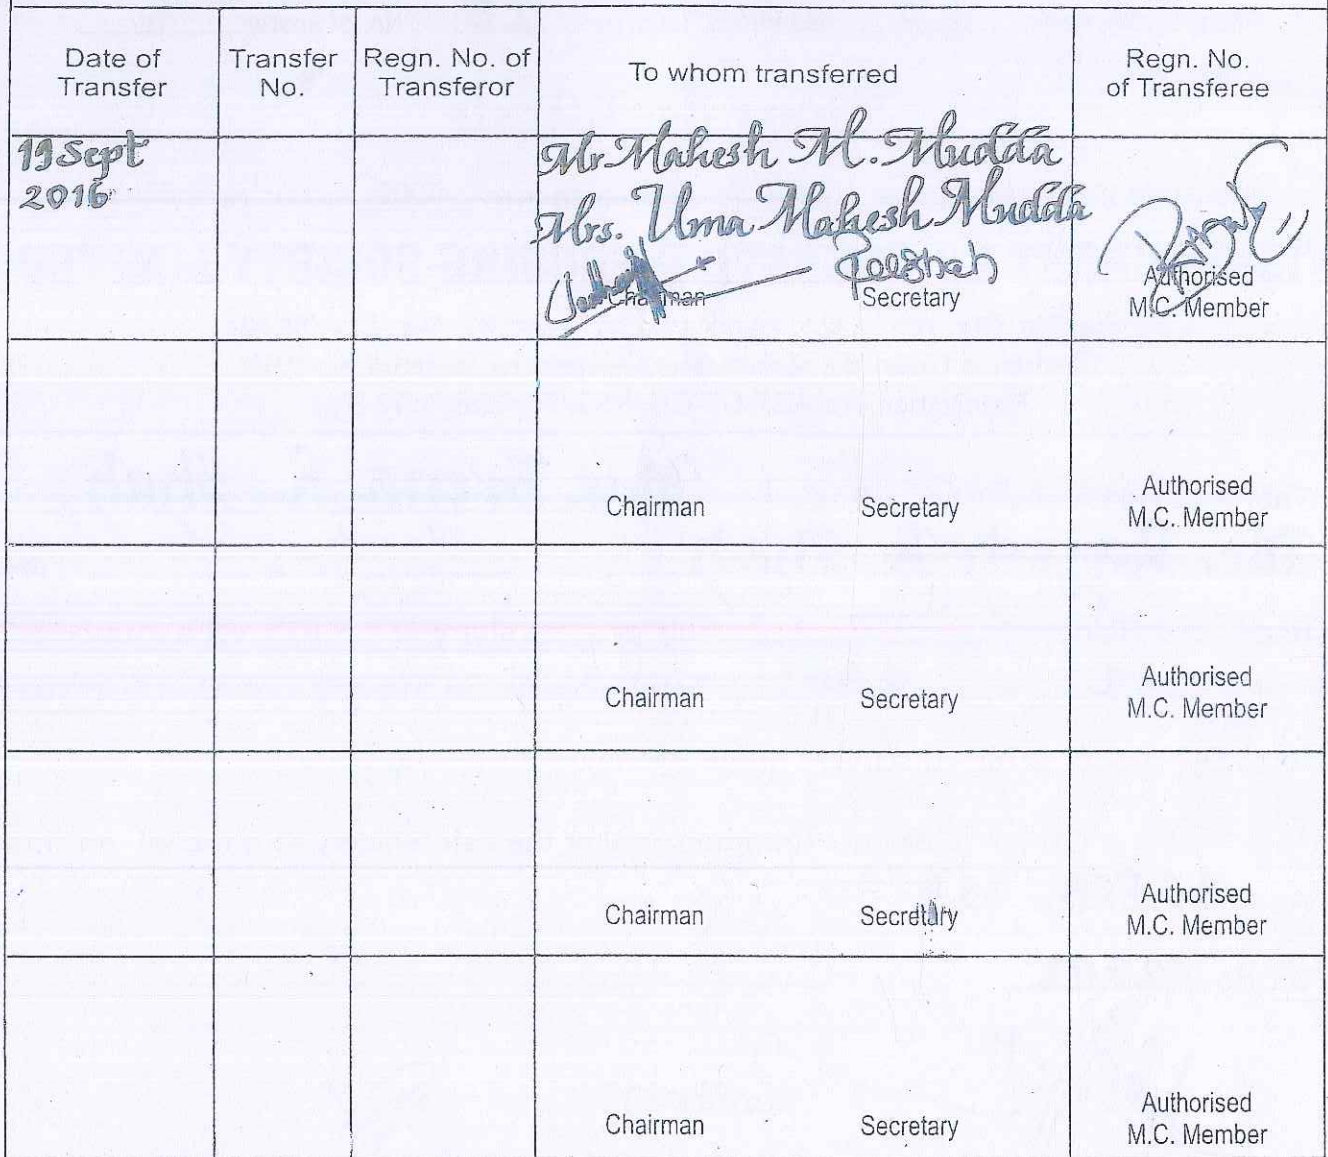 Date of Transfer
Transfer No.
Regn. No. of Transferor
To whom transferred
Regn. No. of Transferee
19 Sept 2016
Mr. Mahesh M. Mudda
Mrs. Uma Mahesh Mudda
Chairman Secretary
Authorised
M.C. Member
Chairman Secretary
Authorised
M.C. Member
Chairman Secretary
Authorised
M.C. Member
Chairman Secretary
Authorised
M.C. Member
Chairman Secretary
Authorised
M.C. Member